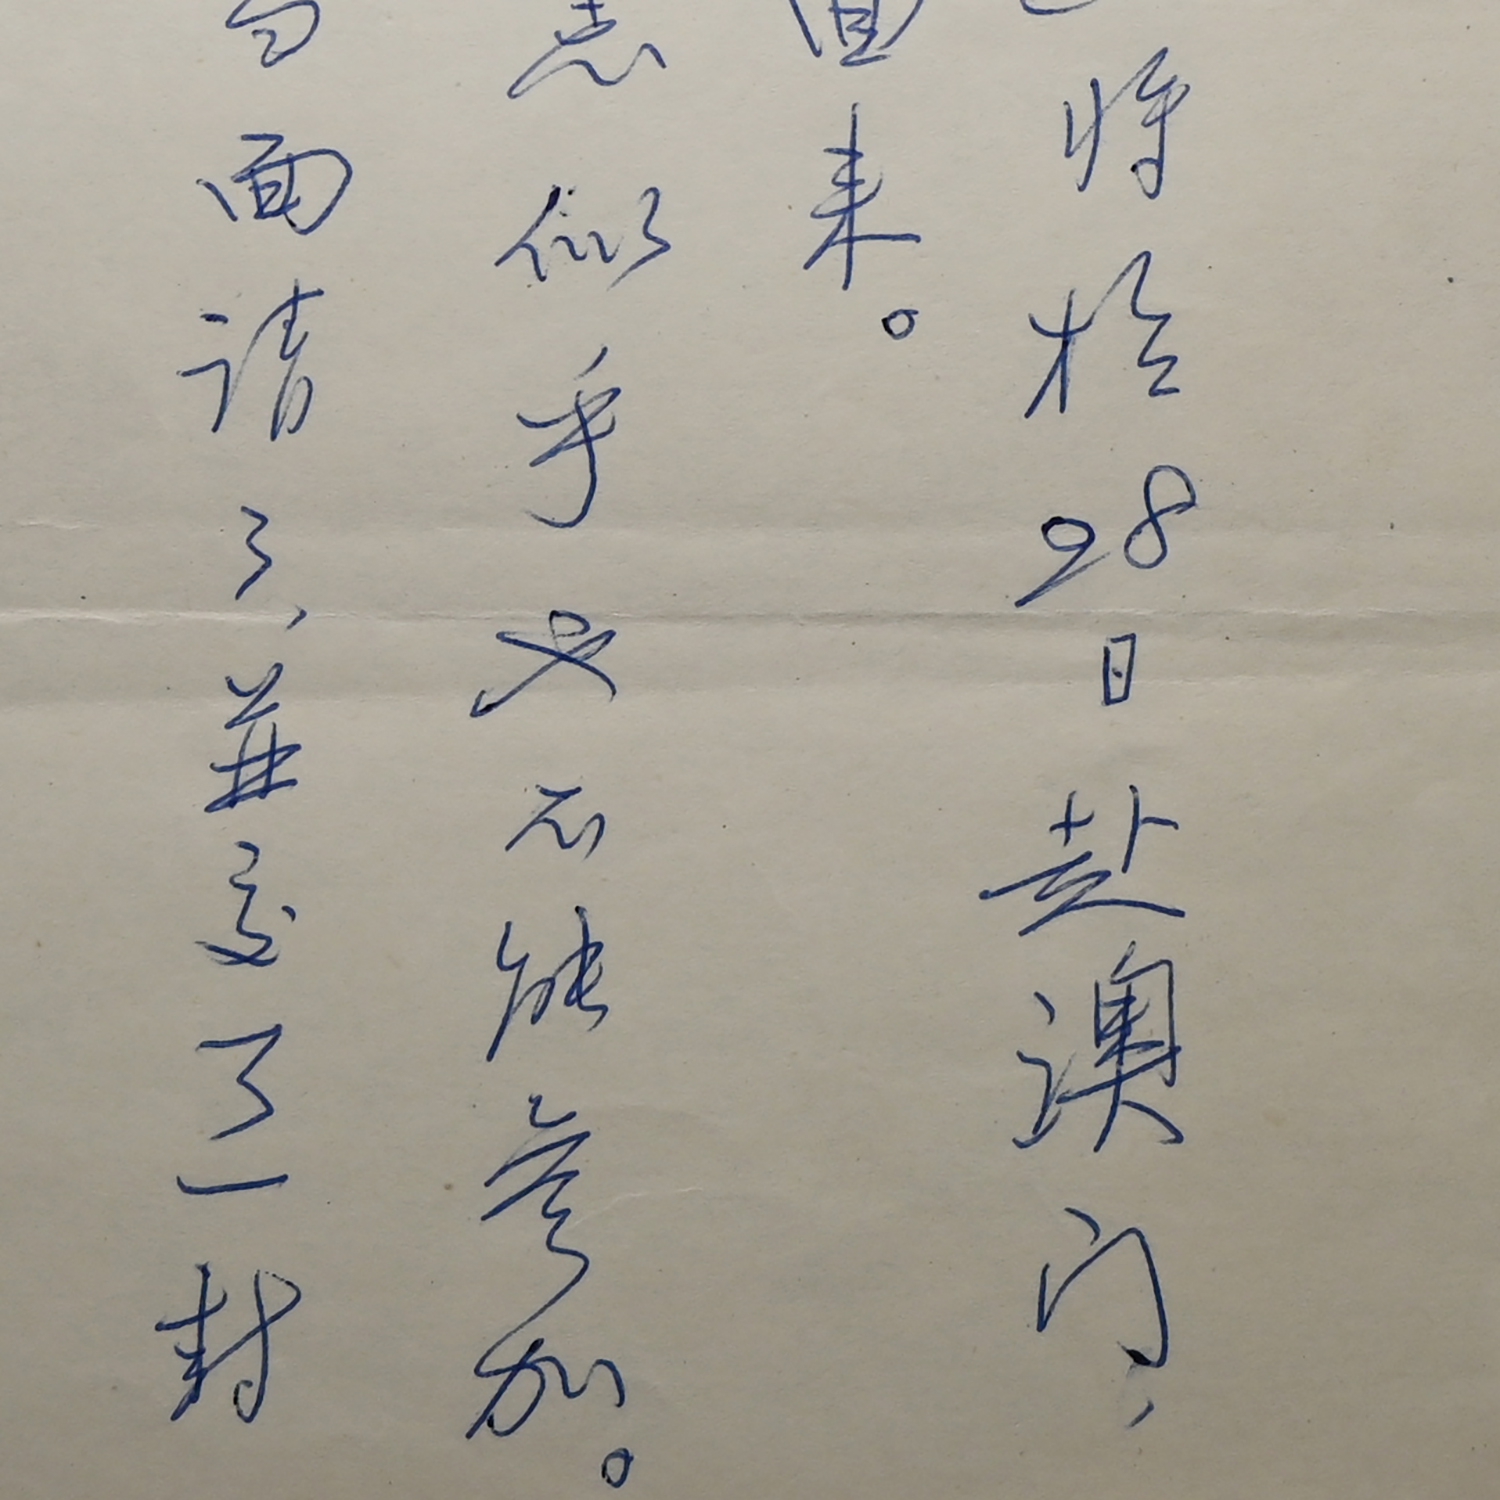 将於28日赴澳门，
来。
似乎又不能参加。
面请了，并交了一封